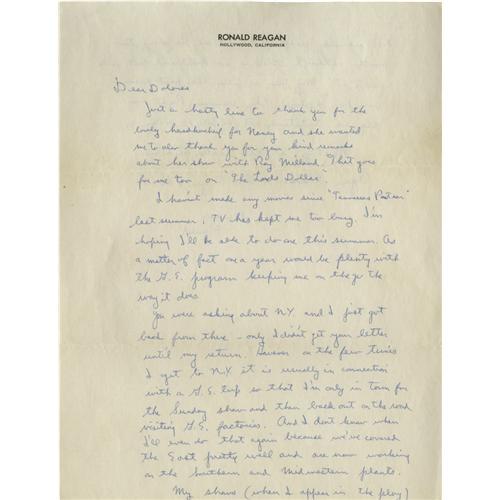 RONALD REAGAN
HOLLYWOOD, CALIFORNIA
Dear Dolores
Just a hasty line to thank you for the
lovely handkerchief for Nancy and she wanted
me to also thank you for your kind remarks
about her show with Ray Milland. That goes
for me too on "The Lord's Dollar".
I haven't made any movies since "Tennessee's Partner"
last summer, TV has kept me too busy. I'm
hoping I'll be able to do one this summer. As
a matter of fact one a year would be plenty with
the G.E. program keeping me on the go the
way it does.
You were asking about N.Y. and I just got
back from there – only I didn't get your letter
until my return. However on the few times
I get to N.Y. it is usually in connection
with a G.E. trip so that I'm only in town for
the Sunday show and then back out on the road
visiting G.E. factories. And I don't know when
I'll even do that again because we've covered
the East pretty well and are now working
on the Southern and Midwestern plants.
My shows (when I appear in the play)